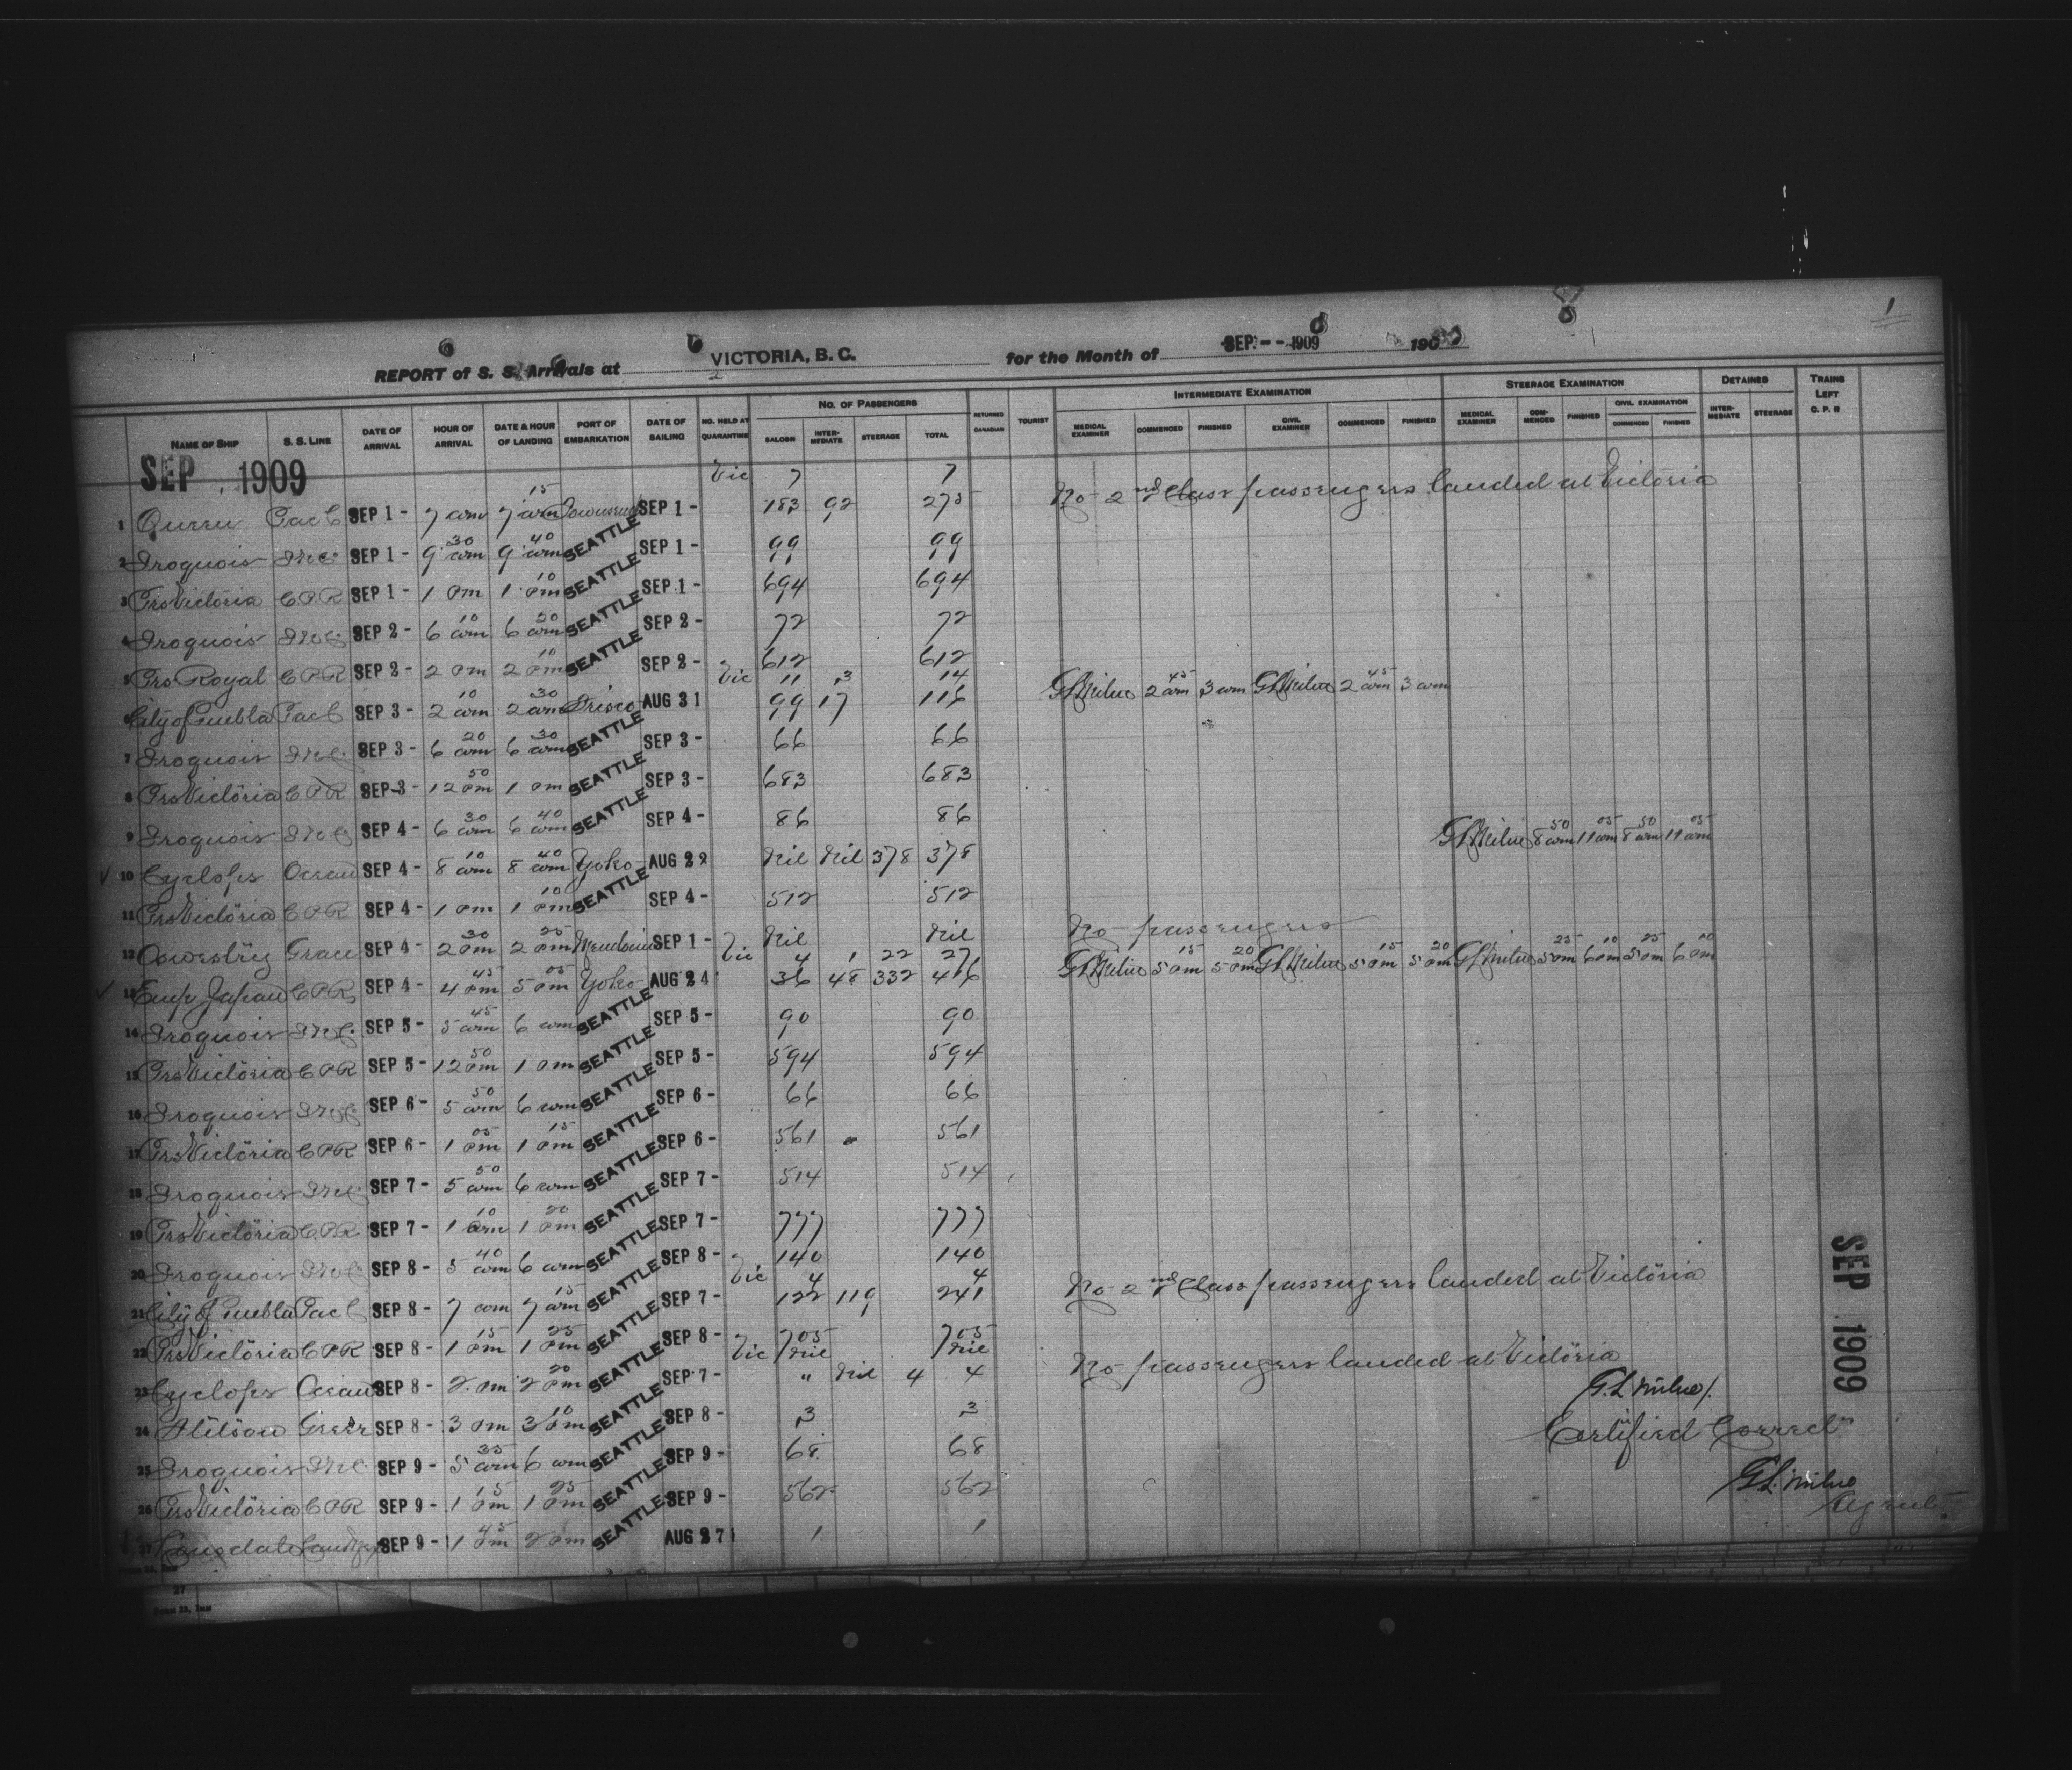 1
REPORT of S. S. Arrivals at VICTORIA, B. C. for the Month of SEP -- 1909 190
NAME OF SHIP S. S. LINE DATE OF ARRIVAL HOUR OF ARRIVAL DATE & HOUR OF LANDING PORT OF EMBARKATION DATE OF SAILING NO. HELD AT QUARANTINE NO. OF PASSENGERS SALOON INTERMEDIATE STEERAGE TOTAL RETURNED CANADIAN TOURIST INTERMEDIATE EXAMINATION MEDICAL EXAMINER COMMENCED FINISHED CIVIL EXAMINER COMMENCED FINISHED STEERAGE EXAMINATION MEDICAL EXAMINER COMMENCED FINISHED CIVIL EXAMINATION COMMENCED FINISHED DETAINED INTERMEDIATE STEERAGE TRAINS LEFT C. P. R
SEP 1909
Vic 7 7
1 Queen Pac C SEP 1 - 7 am 7 15 am Townsend SEP 1 - 183 92 275 No 2nd Class passengers landed at Victoria
2 Iroquois SEP 1 - 9 30 am 9 40 am SEATTLE SEP 1 - 99 99
3 Prs Victoria C.P.R SEP 1 - 1 pm 1 10 pm SEATTLE SEP 1 - 694 694
4 Iroquois SEP 2 - 6 10 am 6 20 am SEATTLE SEP 2 - 72 72
5 Prs Royal C.P.R SEP 2 - 2 pm 2 10 pm SEATTLE SEP 2 - 612 612
Vic 11 3 14
6 City of Puebla Pac C SEP 3 - 2 10 am 2 30 am Frisco AUG 31 99 17 116 G L Milne 2 45 am 3 am G L Milne 2 45 am 3 am
7 Iroquois SEP 3 - 6 20 am 6 30 am SEATTLE SEP 3 - 66 66
8 Prs Victoria C P R SEP 3 - 12 50 pm 1 pm SEATTLE SEP 3 - 683 683
9 Iroquois SEP 4 - 6 30 am 6 40 am SEATTLE SEP 4 - 86 86
10 Cyclops Ocean SEP 4 - 8 10 am 8 40 am Yoko AUG 22 Nil Nil 378 378 G L Milne 8 50 am 11 05 am 8 50 am 11 05 am
11 Prs Victoria C P R SEP 4 - 1 pm 1 10 pm SEATTLE SEP 4 - 512 512
12 Oswestry Grace SEP 4 - 2 30 pm 2 25 pm SEP 1 - Nil Nil No passengers
Vic 4 1 22 27
13 Emp Japan C P R SEP 4 - 4 45 pm 5 05 pm Yoko AUG 24 36 48 332 416 G L Milne 5 15 pm 5 20 pm G L Milne 5 15 pm 5 20 pm G L Milne 5 25 pm 6 10 pm 5 25 pm 6 10 pm
14 Iroquois SEP 5 - 5 45 am 6 am SEATTLE SEP 5 - 90 90
15 Prs Victoria C P R SEP 5 - 12 50 pm 1 pm SEATTLE SEP 5 - 594 594
16 Iroquois SEP 6 - 5 50 am 6 am SEATTLE SEP 6 - 66 66
17 Prs Victoria C P R SEP 6 - 1 05 pm 1 15 pm SEATTLE SEP 6 - 561 561
18 Iroquois SEP 7 - 5 50 am 6 am SEATTLE SEP 7 - 514 514
19 Prs Victoria C.P.R SEP 7 - 1 10 pm 1 20 pm SEATTLE SEP 7 - 777 777
20 Iroquois SEP 8 - 5 40 am 6 am SEATTLE SEP 8 - 140 140
Vic 4 4
21 City of Puebla Pac C SEP 8 - 7 am 7 15 am SEATTLE SEP 7 - 122 119 241 No 2nd Class passengers landed at Victoria
22 Prs Victoria C P R SEP 8 - 1 15 pm 1 25 pm SEATTLE SEP 8 - 705 705
Vic Nil Nil
23 Cyclops Ocean SEP 8 - 2 pm 2 20 pm SEATTLE SEP 7 - " Nil 4 4 No passengers landed at Victoria
G. L. Milne
24 Stetson SEP 8 - 3 pm 3 10 pm SEATTLE SEP 8 - 3 3
Certified Correct
25 Iroquois SEP 9 - 5 35 am 6 am SEATTLE SEP 9 - 68 68
G L. Milne
26 Prs Victoria C P R SEP 9 - 1 15 pm 1 25 pm SEATTLE SEP 9 - 562 562
Agent
27 Lonsdale SEP 9 - 1 45 pm 2 pm SEATTLE AUG 27 1 1
SEP 1909
27
FORM 23, IMM